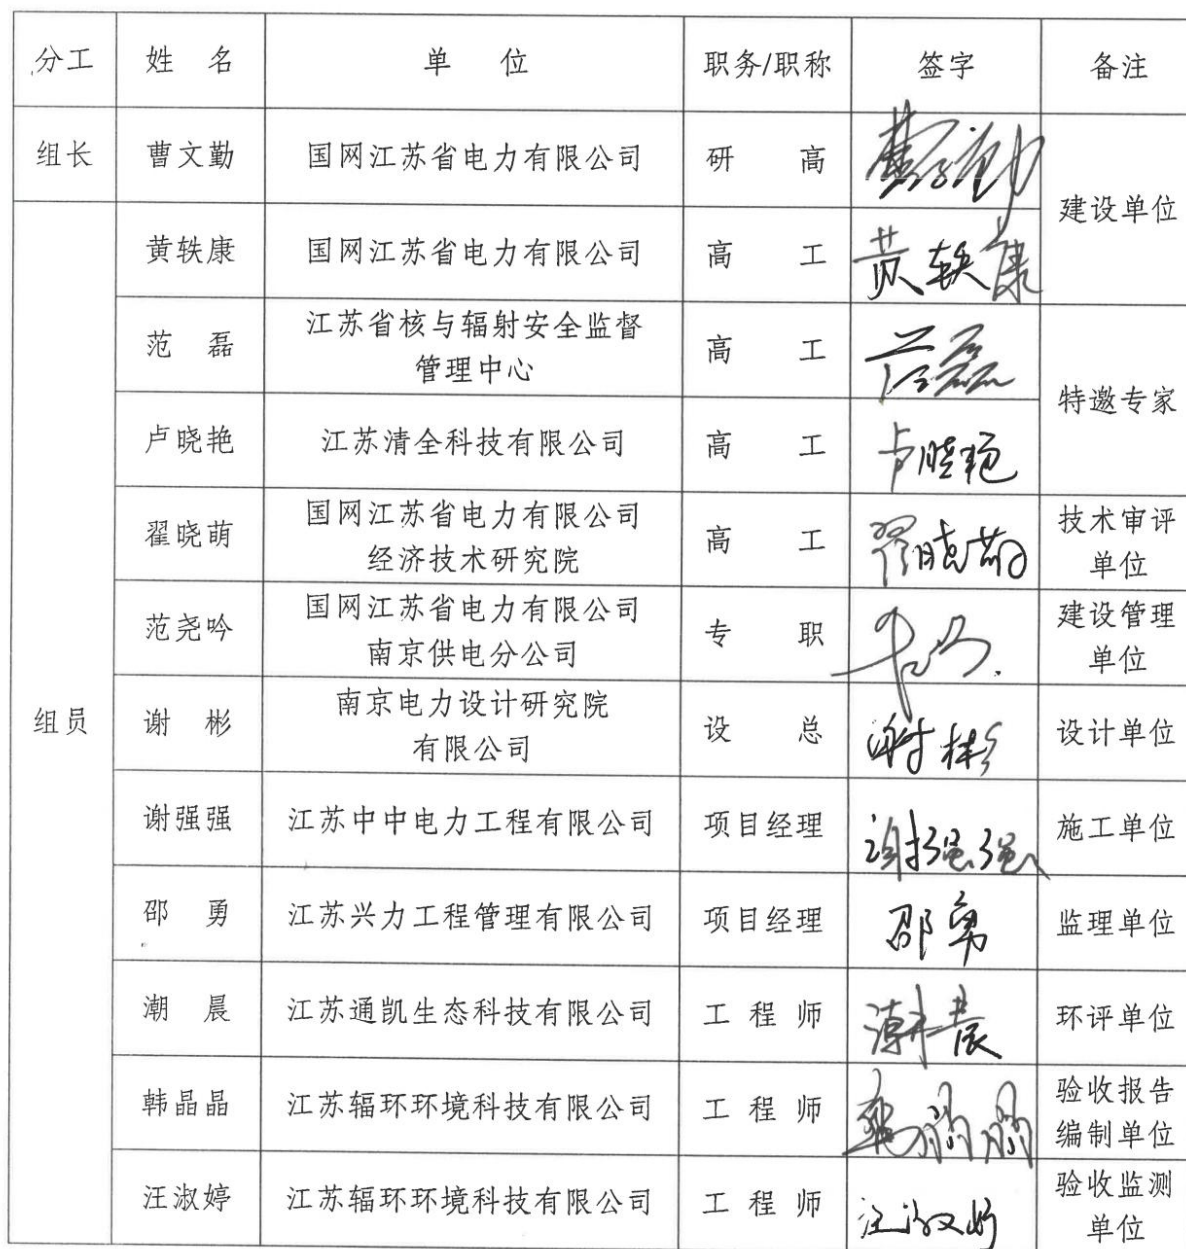 分工 姓 名 单 位 职务/职称 签字 备注
组长 曹文勤 国网江苏省电力有限公司 研 高 曹文勤
建设单位
黄轶康 国网江苏省电力有限公司 高 工 黄轶康
范 磊 江苏省核与辐射安全监督
管理中心 高 工 范磊
特邀专家
卢晓艳 江苏清全科技有限公司 高 工 卢晓艳
翟晓萌 国网江苏省电力有限公司
经济技术研究院 高 工 翟晓萌 技术审评
单位
范尧吟 国网江苏省电力有限公司
南京供电分公司 专 职 建设管理
单位
组员 谢 彬 南京电力设计研究院
有限公司 设 总 谢彬 设计单位
谢强强 江苏中中电力工程有限公司 项目经理 谢强强 施工单位
邵 勇 江苏兴力工程管理有限公司 项目经理 邵勇 监理单位
潮 晨 江苏通凯生态科技有限公司 工 程 师 潮晨 环评单位
韩晶晶 江苏辐环环境科技有限公司 工 程 师 韩晶晶 验收报告
编制单位
汪淑婷 江苏辐环环境科技有限公司 工 程 师 汪淑婷 验收监测
单位